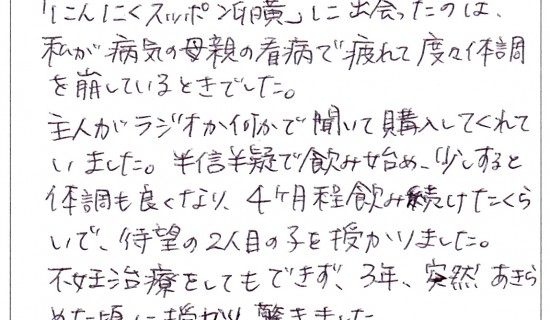 「にんにくスッポン卵黄」に出会ったのは、
私が病気の母親の看病で疲れて度々体調
を崩しているときでした。
主人がラジオか何かで聞いて購入してくれて
いました。半信半疑で飲み始め、少しすると
体調も良くなり、4ヶ月程飲み続けたくら
いで、待望の2人目の子を授かりました。
不妊治療をしてもできず、3年、突然あきら
めた頃に授かり驚きました